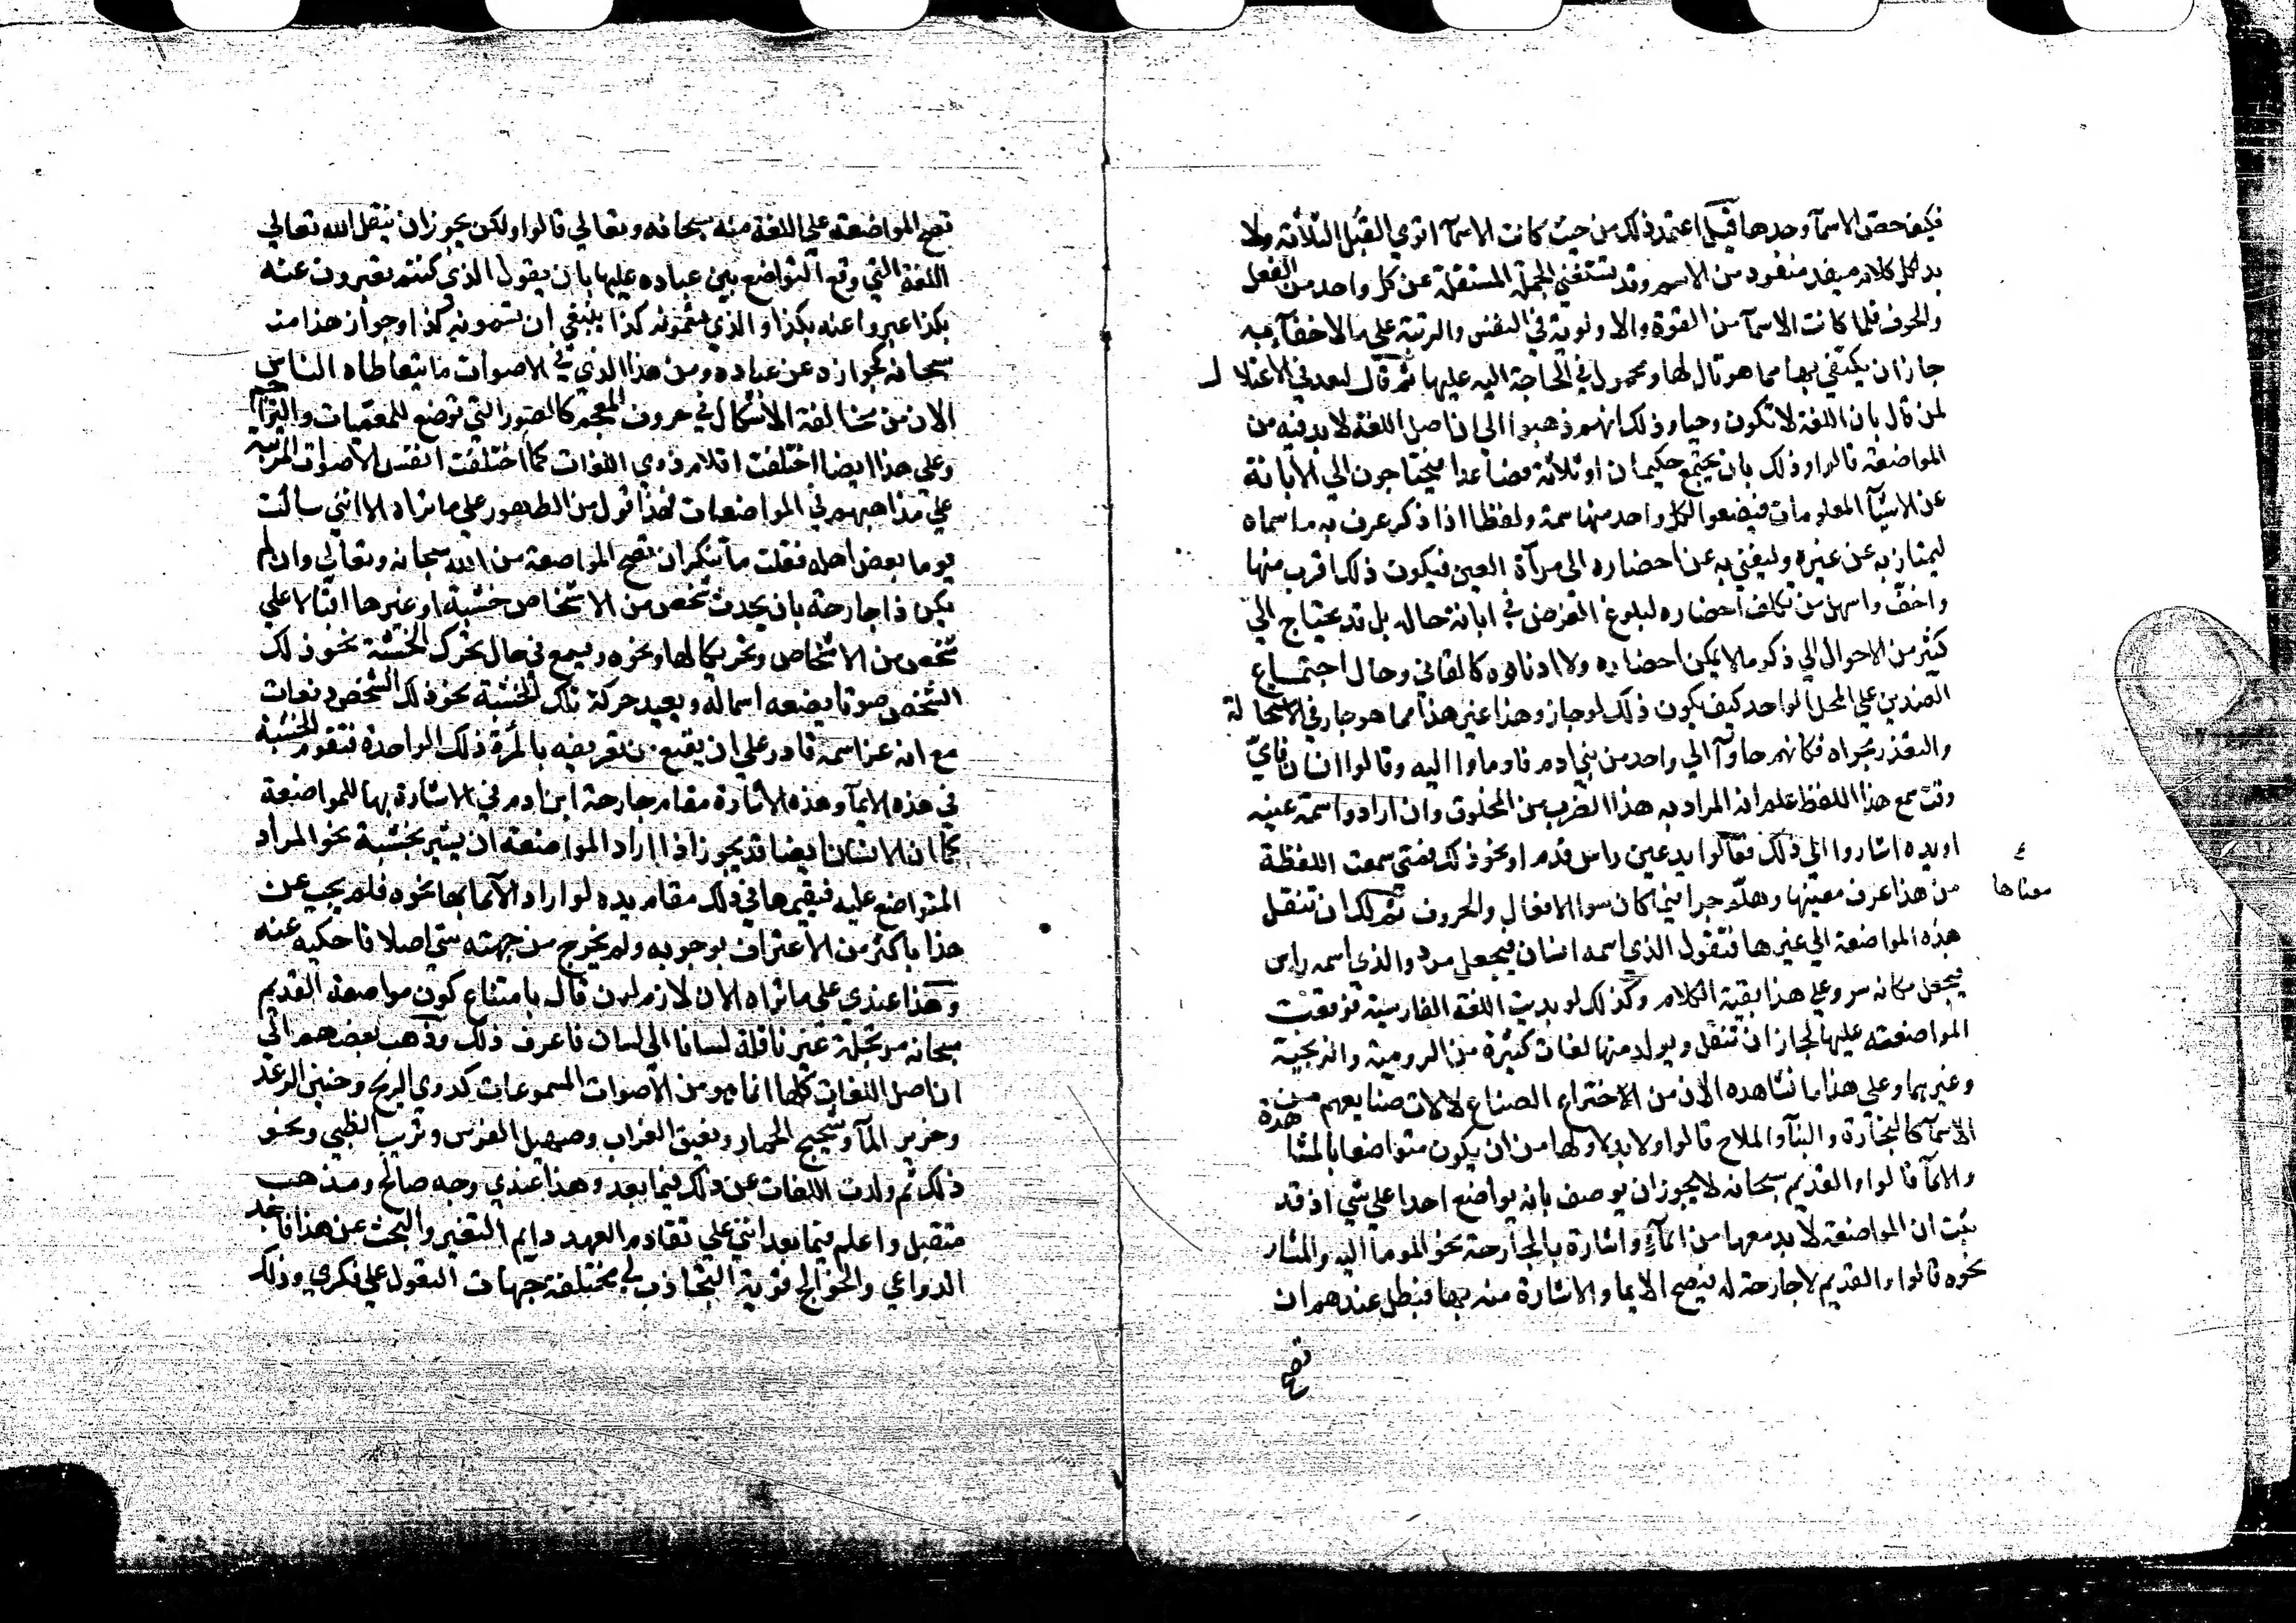 فكيف خص الاسمآ وحدها قيل اعتمد ذلك من حيث كانت الاسمآ اقوي القبل الثلاثة ولا
بد لكل كلام مفيد منفرد من الاسم وقد تستغني الجملة المستقلة عن كل واحد من الفعل
والحرف فلما كانت الاسمآ من القوة والاولوية في النفس والرتبة علي ما لا خفآ به
جاز ان يكتفي بها مما هو تال لها ومحمول في الحاجة اليه عليها ثم قال لبعد في الاعتلال
لمن قال بان اللغة لا تكون وحيا وذلك انهم ذهبوا الي ان اصل اللغة لا بد فيه من
المواضعة قالوا وذلك بان يجتمع حكيمان او ثلاثة فصاعدا فيحتاجون الي الابانة
عن الاشيآ المعلومات فيضعوا لكل واحد منها سمة ولفظا اذا ذكر عرف به ما سماه
ليمتاز به عن غيره وليغني به عن احضاره الي مرآة العين فيكون ذلك اقرب منها
واخف واسهل من تكلف احضاره لبلوغ الغرض في ابانة حاله بل قد يحتاج الي
كثير من الاحوال الي ذكر ما لا يمكن احضاره ولا ادناوه كالفاني وحال اجتماع
الضدين علي المحل الواحد كيف يكون ذلك لو جاز وهذا غير هذا مما هو جار في الاستحالة
والتعذر مجراه فكانهم جاوآ الي واحد من بني ادم فاوماوا اليه وقالوا انسان فاي
وقت سمع هذا اللفظ علم ان المراد به هذا الضرب من المخلوق وان ارادوا سمة عينه
او يده اشاروا الي ذلك فقالوا يد عين راس قدم او نحو ذلك فمتي سمعت اللفظة
من هذا عرف معينها وهلم جرا فيما كان سوا الافعال والحروف ثم لك ان تنقل
معناها
هذه المواضعة الي غيرها فتقول الذي اسمه انسان فيجعل مرد والذي اسمه راس
فيجعل مكانه سر وعلي هذا بقية الكلام وكذلك لو بديت اللغة الفارسية فوقعت
المواضعته عليها لجاز ان تنقل ويولد منها لغات كثيرة من الرومية والزنجية
وغيرهما وعلي هذا ما نشاهده الان من الاختراع الصناع لالات صنايعهم من هذه
الاسمآ كالنجارة والبنآ والملاح قالوا ولا بد لاولها من ان يكون متواضعا بالمشا
والايمآ قالوا والقديم سبحانه لا يجوز ان يوصف بانه يواضع احدا علي شي اذ قد
ثبت ان المواضعة لا بد معها من ايمآء واشارة بالجارحة نحو الموما اليه والمشار
نحوه قالوا والقديم لا جارحة له فيصح الايما والاشارة منه بها فيبطل عندهم ان
تصح
تصح المواضعة علي اللغة منه سبحانه وتعالي قالوا ولكن يجوز ان ينقل الله تعالي
اللغة التي وقع التواضع بين عباده عليها بان يقول الذي كنتم تعبرون عنه
بكذا عبروا عنه بكذا والذي يسمونه كذا ينبغي ان تسمونه كذا وجواز هذا منه
سبحانه كجوازه عن عباده ومن هذا الذي في الاصوات ما يتعاطاه الناس
الان من مخالفة الاشكال في حروف المعجم كالصور التي توضع للمعميات والتراجم
وعلي هذا ايضا اختلفت اقلام ذوي اللغات كما اختلفت انفس الاصوات المرتبة
علي مذاهبهم في المواضعات فهذا قول من الظهور علي ما تراه الا انني سالت
يوما بعض اهله فقلت ما تنكر ان تصح المواضعة من الله سبحانه وتعالي وان لم
يكن ذا جارحة بان يحدث شخص من الاشخاص خشبة او غيرها اقبالا علي
شخص من الاشخاص وتحريكا لها ونحوه ويسمع في حال تحرك الخشبة نحو ذلك
الشخص صوتا يضعه اسما له ويعيد حركة تلك الخشبة نحو ذلك الشخص دفعات
مع انه عز اسمه قادر علي ان يقنع تعريفه بالمرة ذلك الواحدة فتقوم الخشبة
في هذه الايمآ وهذه الاشارة مقام جارحة ابن ادم في الاشارة بها للمواضعة
كما ان الانسان ايضا قد يجوز اذا اراد المواضعة ان يشير بخشبة نحو المراد
المتواضع عليه فيقيمها في ذلك مقام يده لو اراد الايما بها نحوه فلم يجب عن
هذا باكثر من الاعتراف بوجوبه ولم يخرج من جهته شي اصلا فاحكيه عنه
وهذا عندي علي ما تراه الان لازم لمن قال بامتناع كون مواضعة القديم
سبحانه مرتجلة غير ناقلة لسانا الي لسان فاعرف ذلك وذهب بعضهم الي
ان اصل اللغات كلها انما هو من الاصوات المسموعات كدوي الريح وحنين الرعد
وخرير المآ وشحيج الحمار ونعيق الغراب وصهيل الفرس ونزيب الظبي ونحو
ذلك ثم ولدت اللغات عن ذلك فيما بعد وهذا عندي وجه صالح ومذهب
متقبل واعلم فيما بعد انني علي تقادم العهد دايم التنقير والبحث عن هذا فاجد
الدواعي والخوالج قوية التجاذب لي مختلفة جهات التغول علي فكري وذلك